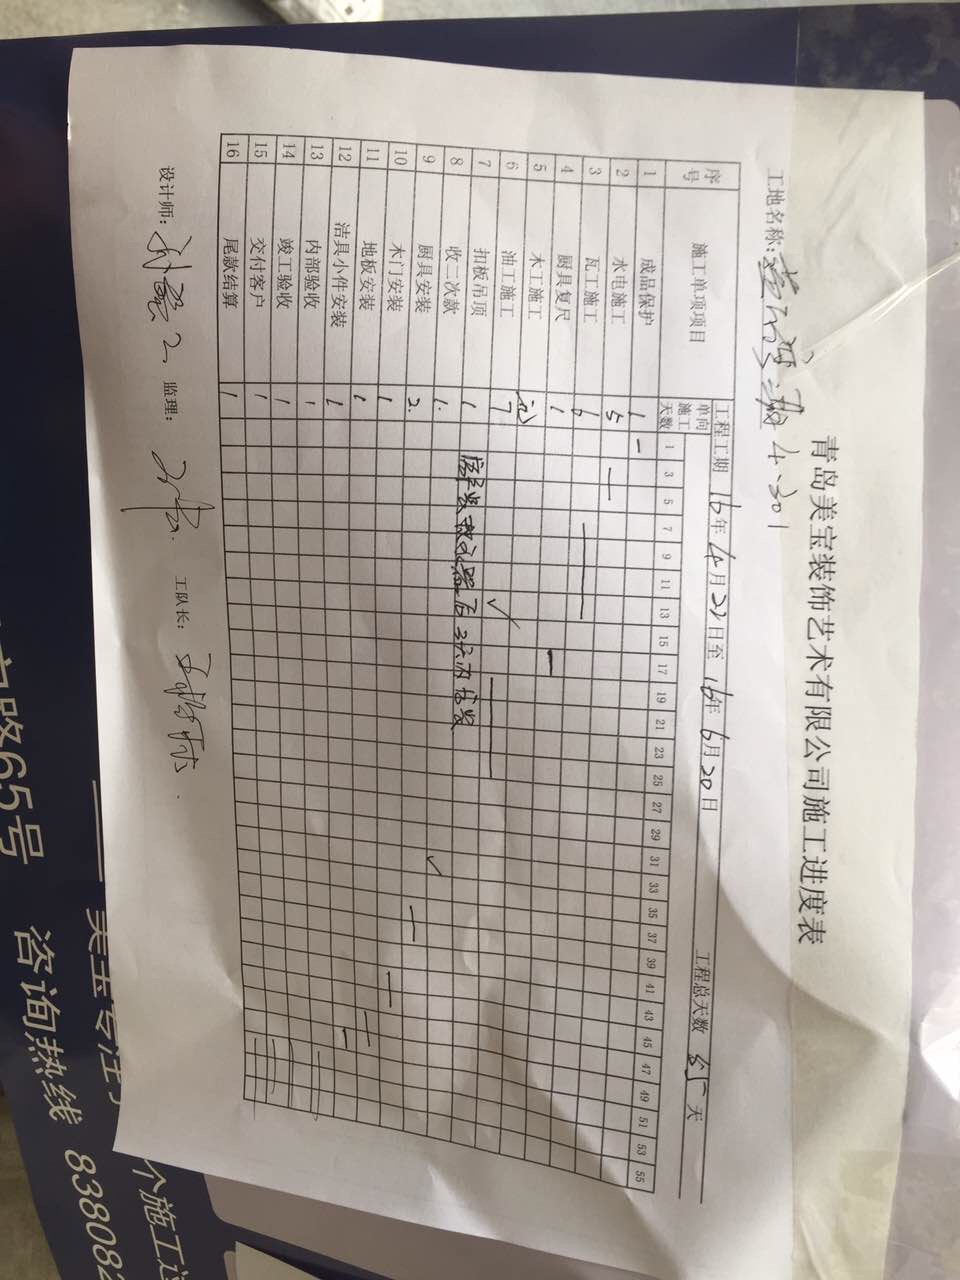 青岛美宝装饰艺术有限公司施工进度表
工地名称: 4.301
工程工期 16年4月22日至 16年6月20日 工程总天数 55天
序号 施工单项项目 单向施工天数 1 3 5 7 9 11 13 15 17 19 21 23 25 27 29 31 33 35 37 39 41 43 45 47 49 51 53 55
1 成品保护 1
2 水电施工 5
3 瓦工施工 6
4 厨具复尺 1
5 木工施工
6 油工施工 7
7 扣板吊顶 1
8 收二次款 1.
9 厨具安装 2.
10 木门安装 1
11 地板安装 1
12 洁具小件安装 1
13 内部验收 1
14 竣工验收 1
15 交付客户 1
16 尾款结算 1
设计师: 监理: 工队长:
路65号 咨询热线 838082
美宝专注
个施工